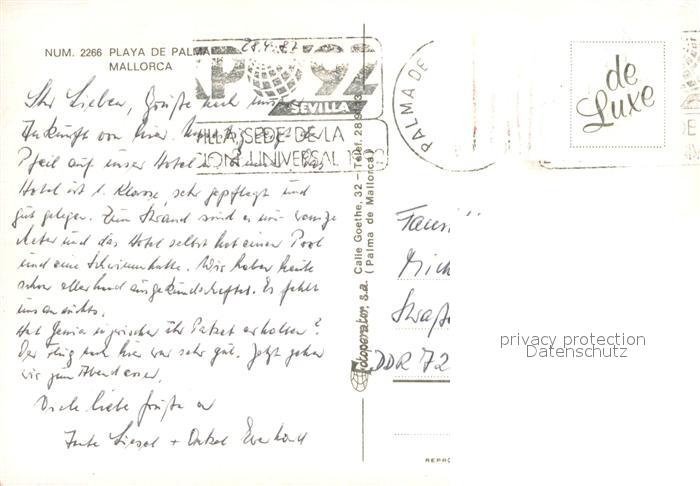 NUM. 2266 PLAYA DE PALMA
MALLORCA
28.4.87
PO 92
SEVILLA
VILLA SEDE DE LA
CION UNIVERSAL 1992
PALMA DE
de
Luxe
Ihr Lieben, Grüße nach unserer
Ankunft von hier.
Pfeil auf unser Hotel
Hotel ist 1. Klasse, sehr gepflegt und
gut gelegen. Zum Strand sind es nur wenige
Meter und das Hotel selbst hat einen Pool
und eine Schwimmhalle. Wir haben heute
schon allerhand ausgekundschaftet. Es fehlt
uns an nichts.
Hat inzwischen ihr Paket erhalten?
Der Flug nach hier war sehr gut. Jetzt gehen
wir zum Abendessen.
Viele liebe Grüße an
Tante Liesel + Onkel Eberhard
fotoperator, s.a. Calle Goethe, 32 - Telef. 28
(Palma de Mallorca)
Fami
Mich
Straße
DDR 72
privacy protection
Datenschutz
REPRO